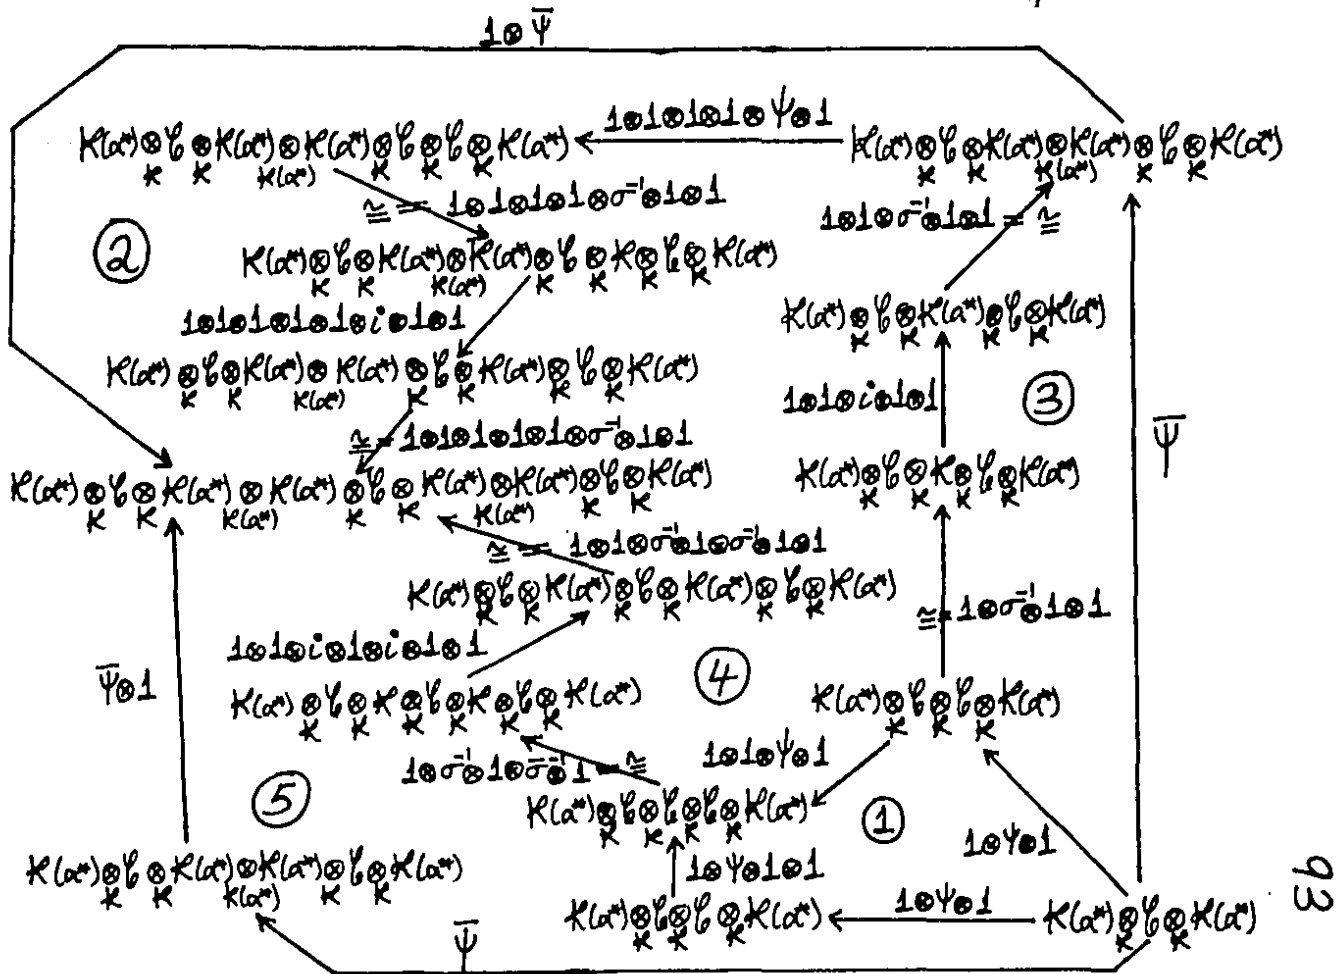 1⊗Ψ̄
1⊗1⊗1⊗1⊗Ψ⊗1
K(α*)⊗_K 𝒞⊗_K K(α*)⊗_{K(α*)} K(α*)⊗_K 𝒞⊗_K 𝒞⊗_K K(α*)
K(α*)⊗_K 𝒞⊗_K K(α*)⊗_{K(α*)} K(α*)⊗_K 𝒞⊗_K K(α*)
≅ = 1⊗1⊗1⊗1⊗σ⁻¹⊗1⊗1
1⊗1⊗σ⁻¹⊗1⊗1 = ≅
②
K(α*)⊗_K 𝒞⊗_K K(α*)⊗_{K(α*)} K(α*)⊗_K 𝒞⊗_K K⊗_K 𝒞⊗_K K(α*)
1⊗1⊗1⊗1⊗1⊗i⊗1⊗1
K(α*)⊗_K 𝒞⊗_K K(α*)⊗_K 𝒞⊗_K K(α*)
K(α*)⊗_K 𝒞⊗_K K(α*)⊗_{K(α*)} K(α*)⊗_K 𝒞⊗_K K(α*)⊗_K 𝒞⊗_K K(α*)
1⊗1⊗i⊗1⊗1
③
≅ = 1⊗1⊗1⊗1⊗1⊗σ⁻¹⊗1⊗1
Ψ̄
K(α*)⊗_K 𝒞⊗_K K(α*)⊗_{K(α*)} K(α*)⊗_K 𝒞⊗_K K(α*)⊗_{K(α*)} K(α*)⊗_K 𝒞⊗_K K(α*)
K(α*)⊗_K 𝒞⊗_K K⊗_K 𝒞⊗_K K(α*)
≅ = 1⊗1⊗σ⁻¹⊗1⊗σ⁻¹⊗1⊗1
K(α*)⊗_K 𝒞⊗_K K(α*)⊗_K 𝒞⊗_K K(α*)⊗_K 𝒞⊗_K K(α*)
≅ = 1⊗σ⁻¹⊗1⊗1
1⊗1⊗i⊗1⊗i⊗1⊗1
Ψ̄⊗1
④
K(α*)⊗_K 𝒞⊗_K K⊗_K 𝒞⊗_K K⊗_K 𝒞⊗_K K(α*)
K(α*)⊗_K 𝒞⊗_K 𝒞⊗_K K(α*)
1⊗σ⁻¹⊗1⊗σ⁻¹⊗1 = ≅
1⊗1⊗Ψ⊗1
⑤
K(α*)⊗_K 𝒞⊗_K 𝒞⊗_K 𝒞⊗_K K(α*)
①
1⊗Ψ⊗1
K(α*)⊗_K 𝒞⊗_K K(α*)⊗_{K(α*)} K(α*)⊗_K 𝒞⊗_K K(α*)
1⊗Ψ⊗1⊗1
93
K(α*)⊗_K 𝒞⊗_K 𝒞⊗_K K(α*)
1⊗Ψ⊗1
K(α*)⊗_K 𝒞⊗_K K(α*)
Ψ̄